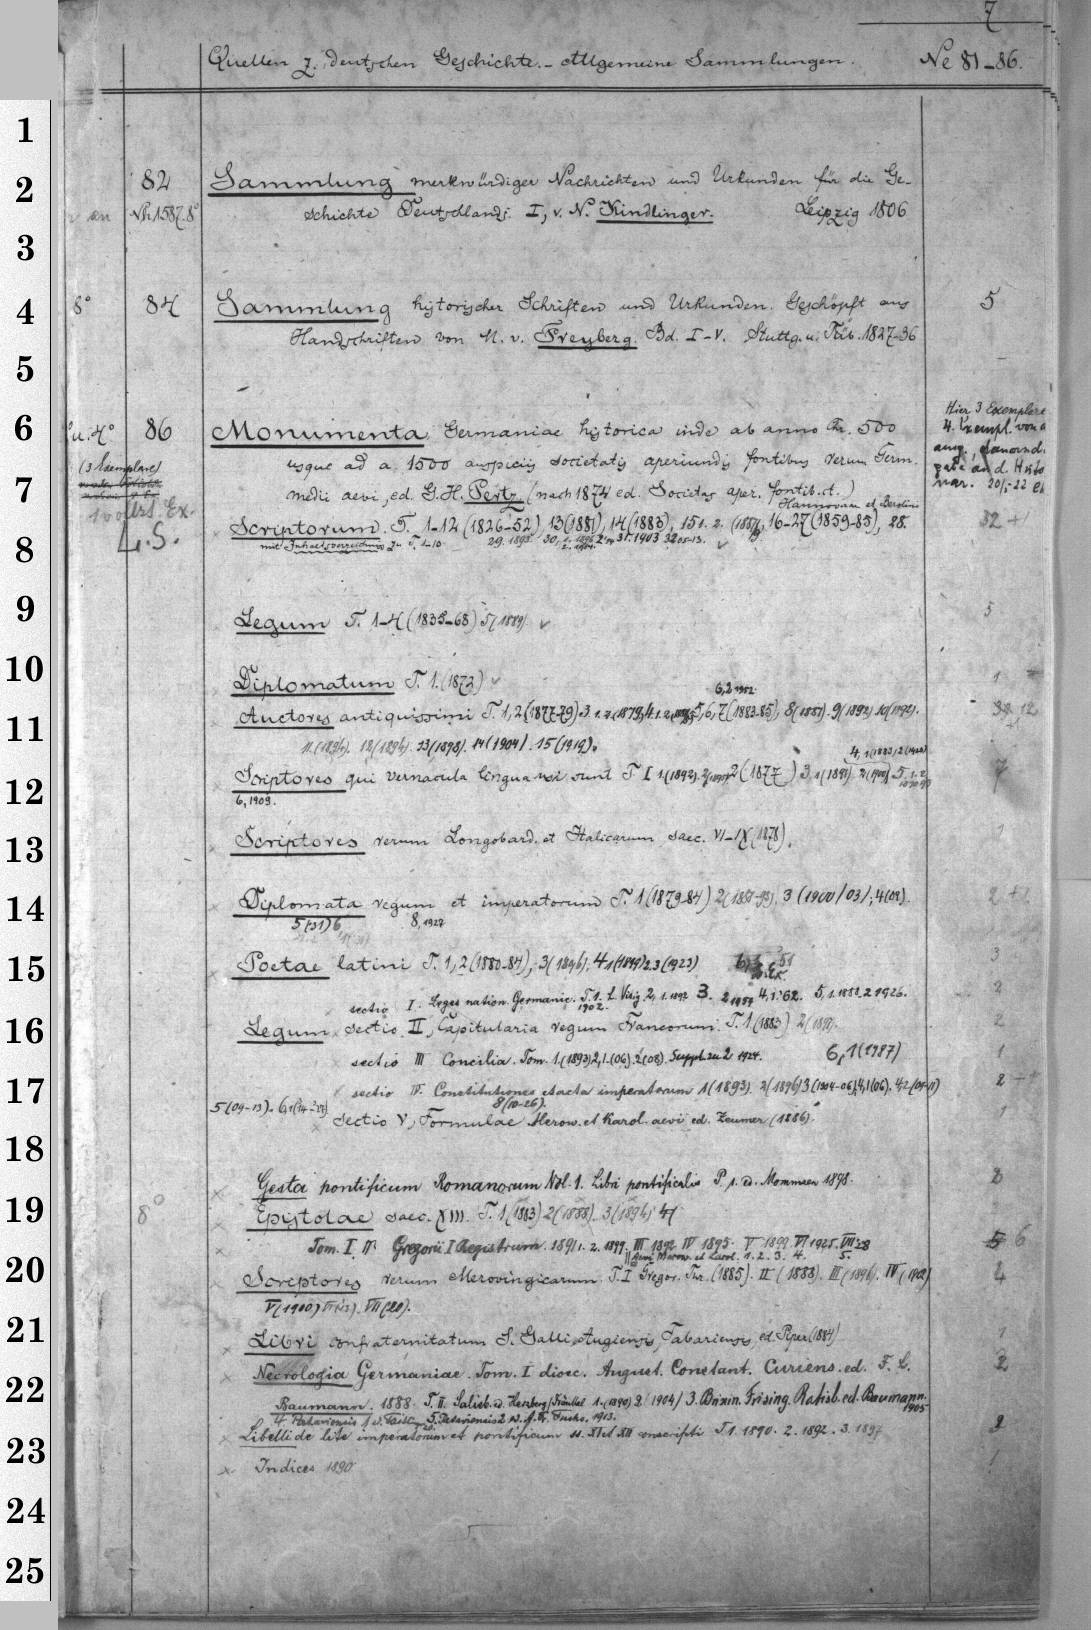 7
Quellen z. deutschen Geschichte. - Allgemeine Sammlungen. Ne 81-86.
1
2
3
4
5
6
7
8
9
10
11
12
13
14
15
16
17
18
19
20
21
22
23
24
25
82 Sammlung merkwürdiger Nachrichten und Urkunden für die Ge-
an Nh 1587.8° schichte Teutschlands. I, v. N. Kindlinger. Leipzig 1806
8° 84 Sammlung historischer Schriften und Urkunden. Geschöpft aus 5
Handschriften von M. v. Freyberg. Bd. I-V. Stuttg. u. Tüb. 1827-36
Hier 3 Exemplare
4. Exempl. von
u. 4° 86 Monumenta Germaniae historica inde ab anno Chr. 500
(3 Exemplare) usque ad a. 1500 auspiciis societatis aperiundis fontibus rerum Germ.
medii aevi, ed. G. H. Pertz (nach 1874 ed. Societas aper. fontib. ct.)
nar. 20/1-22
Hannoverae et Berolini
L.S. Scriptorum. T. 1-12 (1826-52), 13 (1881), 14 (1883), 15 1. 2. (1887, 16-27 (1859-85), 28. 32 +1
mit Inhaltsverzeichnis zu T. 1-10. 29. 1892 30, 31. 1903 32 05-13.
Legum T. 1-4 (1835-68) 5 (1889) 5
Diplomatum T. 1. (1872) 1
6,2 1952.
Auctores antiquissimi T. 1, 2 (1877-79) 3 1. 2. (1879) 4 1. 2. 5, 6, 7 (1883-85), 8 (1887). 9 (1892) 10 (1892). 12
11. (1894). 12 (1894). 13 (1898). 14 (1904). 15 (1919).
4, 1 (1883), 2 (1922)
Scriptores qui vernacula lingua usi sunt T I 1 (1892). 2 (1877) 3, 1 (1891) 2 (1900) 5. 1. 2. 7
6, 1909.
Scriptores rerum Longobard. et Italicarum saec. VI-IX (1878). 1
Diplomata regum et imperatorum T. 1 (1879-84) 2 (1888-93). 3 (1900/03), 4 (09). 2 +1
5 (31) 6 8, 1927
Poetae latini T. 1, 2 (1880-84), 3 (1896). 4 1 (1899) 2. 3 (1923) 3
sectio I. Leges nation. Germanic. T. 1. L. Visig. 2, 1. 1892 3. 2 1957 4, 1. '62. 5, 1. 1888. 2 1926. 2
1902.
Legum sectio II, Capitularia regum Francorum. T. 1 (1883) 2 (1897). 2
sectio III Concilia. Tom. 1. (1893) 2, 1. (06). 2 (08). Suppl. zu 2 1924. 6, 1 (1987) 1
sectio IV. Constitutiones et acta imperatorum 1 (1893). 2 (1896) 3 (1904-06), 4, 1 (06). 4, 2 (09-11) 2
5 (09-13). 6, 1 (14-27) 8 (10-26).
sectio V, Formulae Merow. et Karol. aevi ed. Zeumer (1886). 1
Gesta pontificum Romanorum Vol. 1. Libri pontificalis P. 1. ed. Mommsen 1898.
8° Epistolae saec. XIII. T. 1 (1883) 2 (1888). 3 (1894) 4
Tom. I II Gregorii I Registrum. 1891 1. 2. 1899. III 1892 IV 1895. V 1899 VI 1925. VII 28 6
Aevi Merow. et Karol. 1. 2. 3. 4. 5.
Scriptores rerum Merovingicarum T. I Gregor. Tur. (1885). II (1888). III (1896). IV (1902) 4
V (1910) VI (13). VII (20).
Libri confraternitatum S. Galli, Augiensis, Fabariensis, ed. Piper (1884) 1
Necrologia Germaniae. Tom. I dioec. August. Constant. Curiens. ed. F. L. 2
Baumann. 1888. T. II. Salisb. ed. Herzberg/Fränkel 1. (1890) 2/1904/ 3. Brixin. Frising. Ratisb. ed. Baumann. 1905
4. Pataviensis 1 5. Pataviensis 2 ed. A. Fr. Fuchs. 1913.
Libelli de lite imperatorum et pontificum s. XI et XII conscripti T 1. 1890. 2. 1892. 3. 1897 2
Indices 1890 1